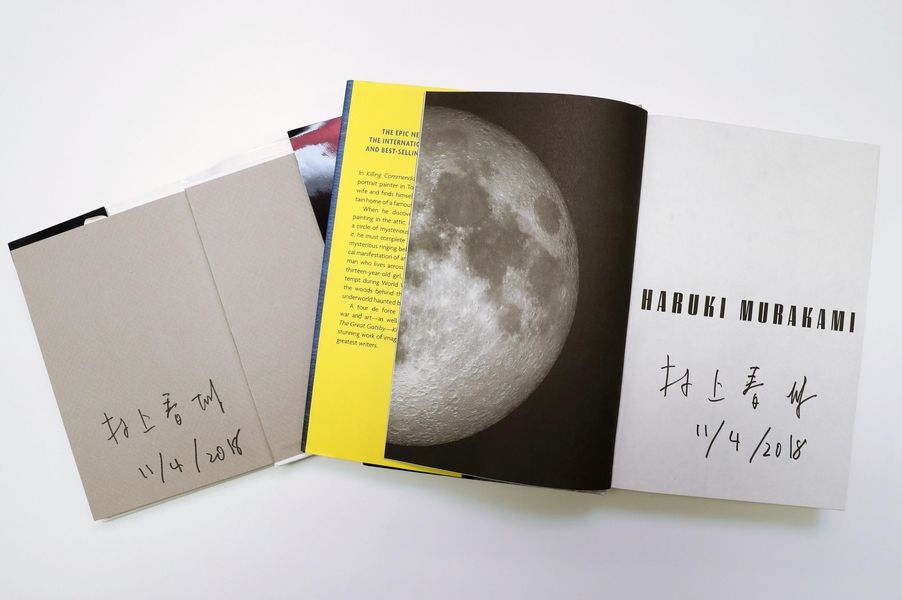 村上春樹
11/4/2018
THE EPIC NE
THE INTERNATIO
AND BEST-SELLIN
In Killing Commenda
portrait painter in To
wife and finds himse
tain home of a famou
When he discove
painting in the attic,
a circle of mysterious
it, he must complete
mysterious ringing bel
cal manifestation of an
man who lives across
thirteen-year-old girl,
tempt during World W
the woods behind th
underworld haunted b
A tour de force
war and art—as well
The Great Gatsby—Ki
stunning work of imag
greatest writers.
HARUKI MURAKAMI
村上春樹
11/4/2018